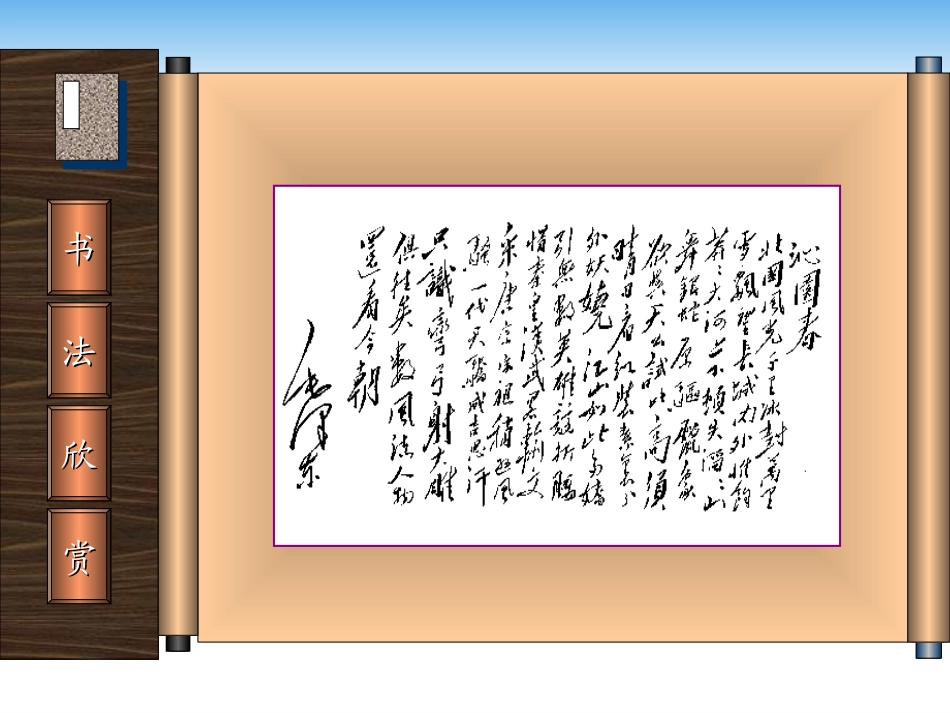 书法欣赏
沁園春
北國風光千里冰封萬里
雪飄望長城内外惟餘
莽々大河上下頓失滔々山
舞銀蛇原驅臘象
欲與天公試比高須
晴日看紅裝素裹分
外妖嬈江山如此多嬌
引無數英雄競折腰
惜秦皇漢武略輸文
采唐宗宋祖稍遜風
騷一代天驕成吉思汗
只識彎弓射大雕
俱往矣數風流人物
還看今朝
毛澤東